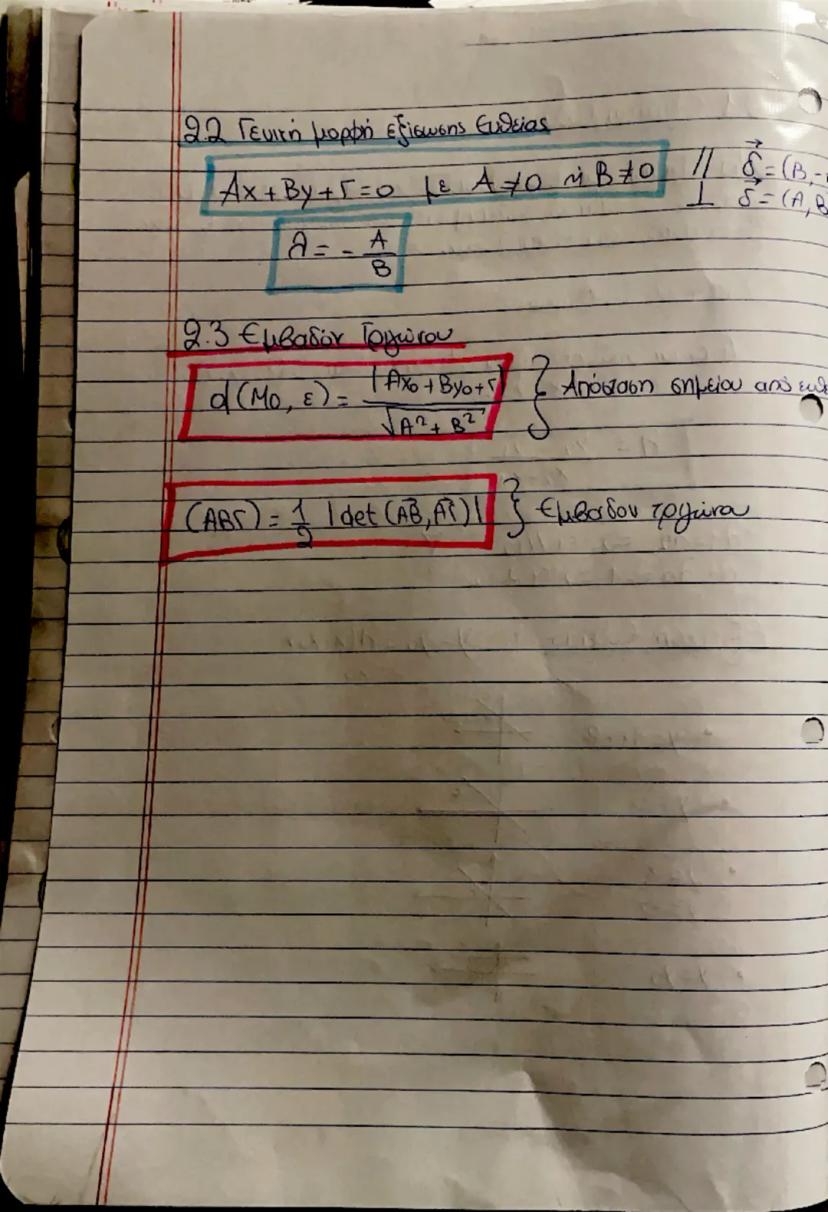 2.2 Γενική μορφή εξίσωσης Ευθείας
Αx + Βy + Γ = 0 με Α ≠ 0 ή Β ≠ 0 // δ⃗ = (Β, -
⊥ δ⃗ = (Α, Β
λ = - Α/Β
2.3 Εμβαδόν Τριγώνου
d(Μ₀, ε) = |Αx₀ + Βy₀ + Γ| / √(Α² + Β²) } Απόσταση σημείου από ευθ
(ΑΒΓ) = 1/2 |det(ΑΒ⃗, ΑΓ⃗)| } Εμβαδον τριγώνου